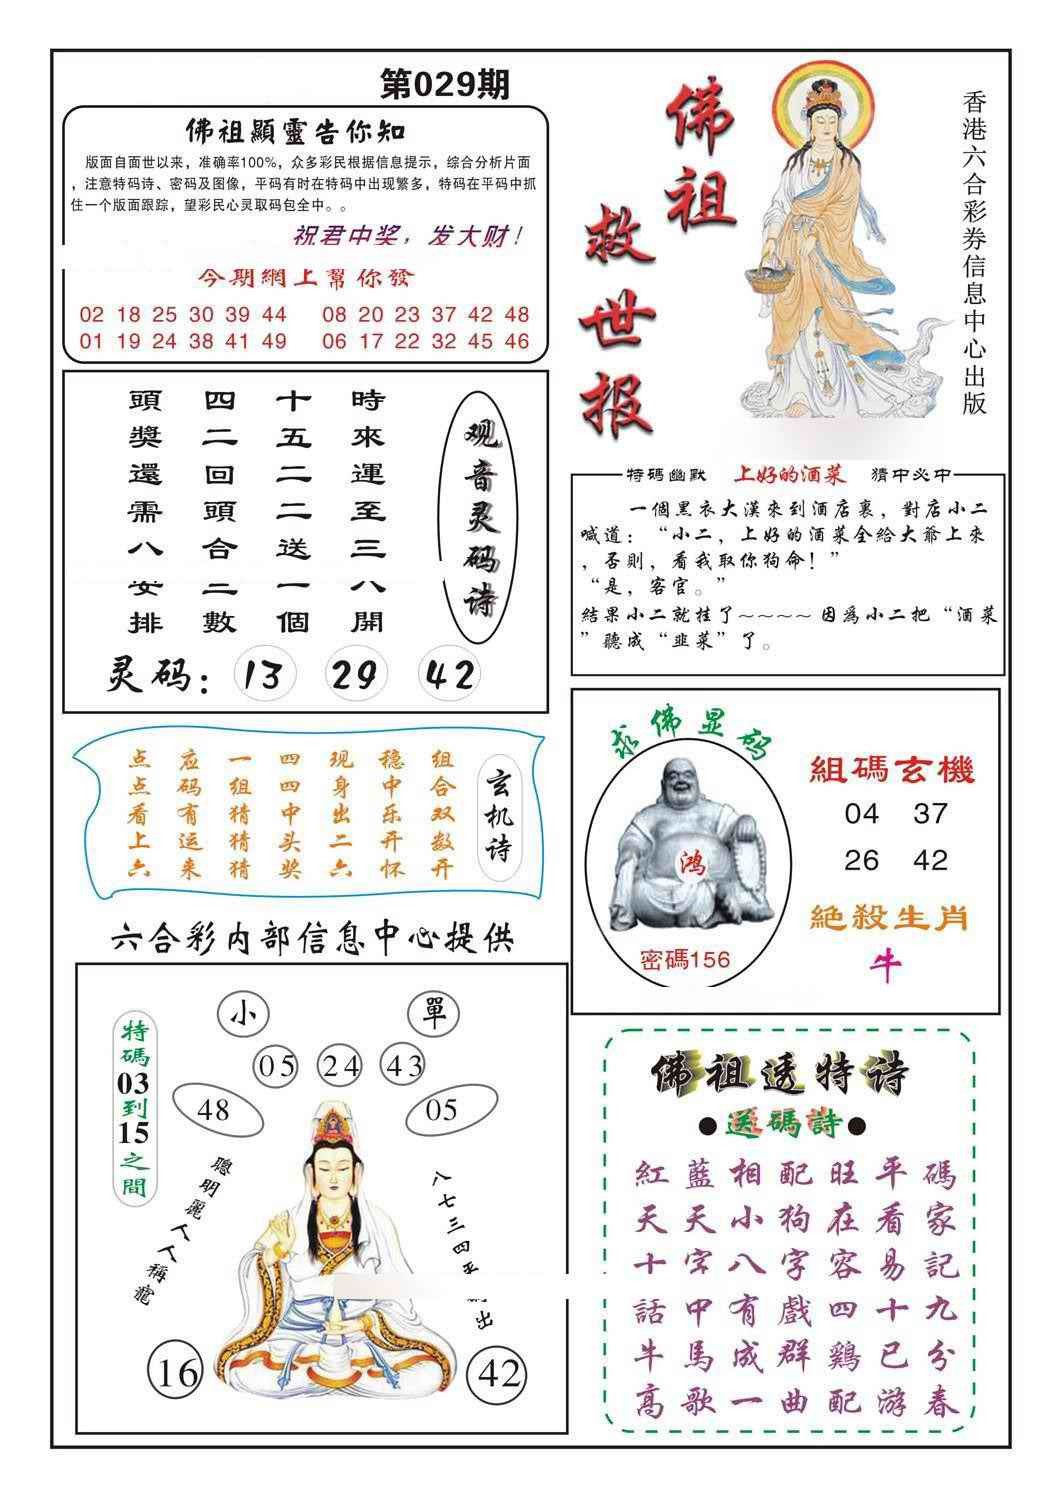 第029期
佛祖顯靈告你知
版面自面世以来，准确率100%，众多彩民根据信息提示，综合分析片面
，注意特码诗、密码及图像，平码有时在特码中出现繁多，特码在平码中抓
住一个版面跟踪，望彩民心灵取码包全中。。
祝君中奖，发大财！
今期網上幫你發
02 18 25 30 39 44 08 20 23 37 42 48
01 19 24 38 41 49 06 17 22 32 45 46
佛祖
救世报
香港六合彩券信息中心出版
观音灵码诗
時來運至三八開
十五二二送一個
四二回頭合二數
頭獎還需八安排
灵码：13 29 42
特碼幽默 上好的酒菜 猜中必中
一個黑衣大漢來到酒店裏，對店小二
喊道：“小二，上好的酒菜全給大爺上來
，否則，看我取你狗命！”
“是，客官。”
結果小二就挂了~~~~因爲小二把“酒菜
”聽成“韭菜”了。
玄机诗
组合双数开
稳中乐开怀
现身出二六
四四中头奖
一组猜猜猜
应码有运来
点点看上六
求佛显码
鸿
密碼156
組碼玄機
04 37
26 42
絕殺生肖
牛
六合彩内部信息中心提供
特碼03到15之間
小
單
05 24 43
48
05
聰明麗人人稱寵
八七三四
出
16
42
佛祖透特诗
●送碼詩●
紅藍相配旺平碼
天天小狗在看家
十字八字容易記
話中有戲四十九
牛馬成群鷄已分
高歌一曲配游春